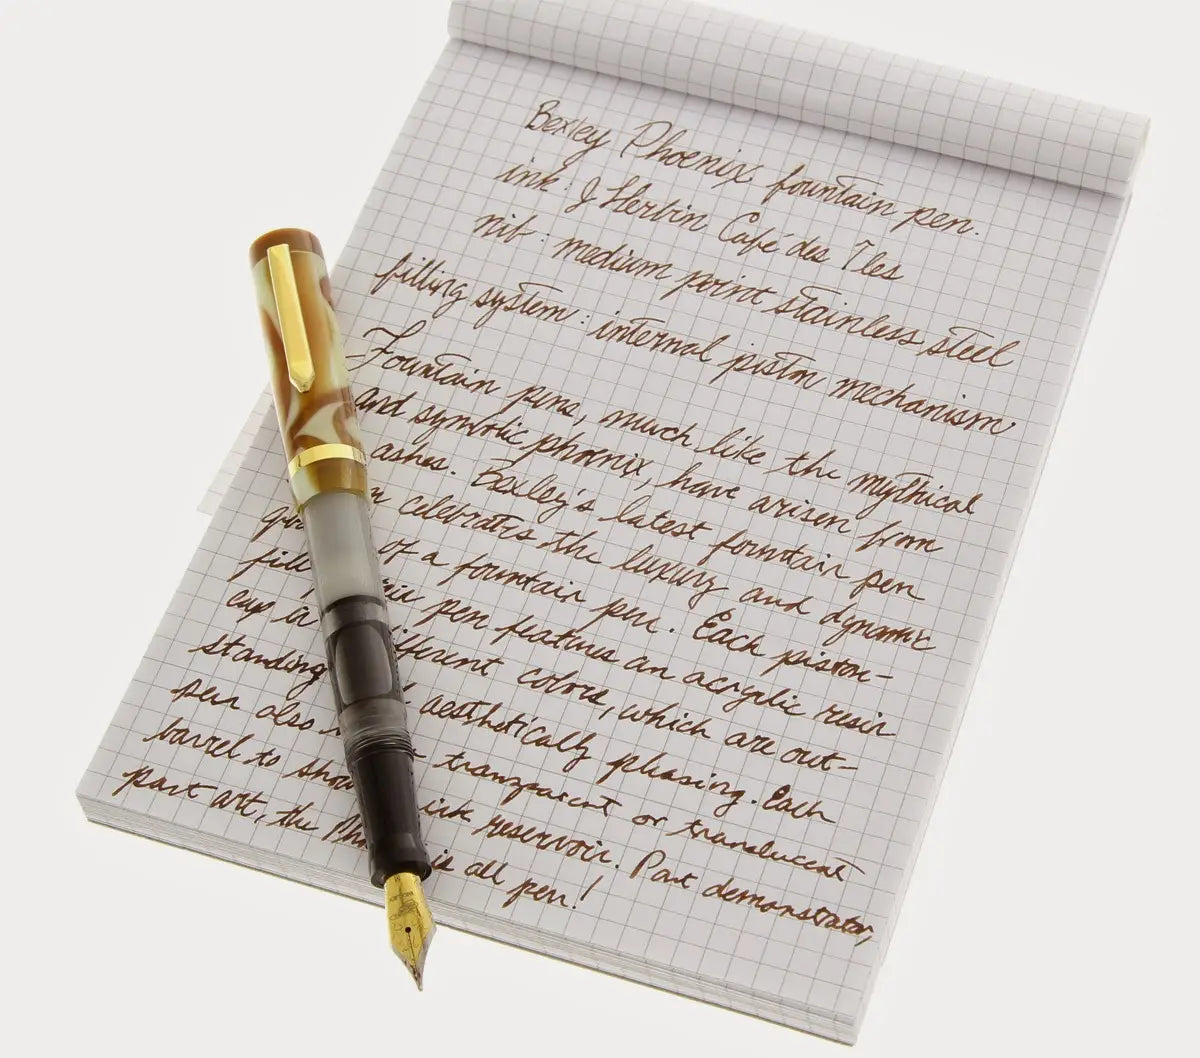 Bexley Phoenix fountain pen.
ink: J Herbin Café des Iles
nib: medium point stainless steel
filling system: internal piston mechanism
Fountain pens, much like the mythical
and symbolic phoenix, have arisen from
ashes. Bexley's latest fountain pen
celebrates the luxury and dynamic
of a fountain pen. Each piston-
pen features an acrylic resin
cap different colors, which are out-
standing aesthetically pleasing. Each
pen also transparent or translucent
barrel to ink reservoir. Part demonstrator,
part art, the is all pen!